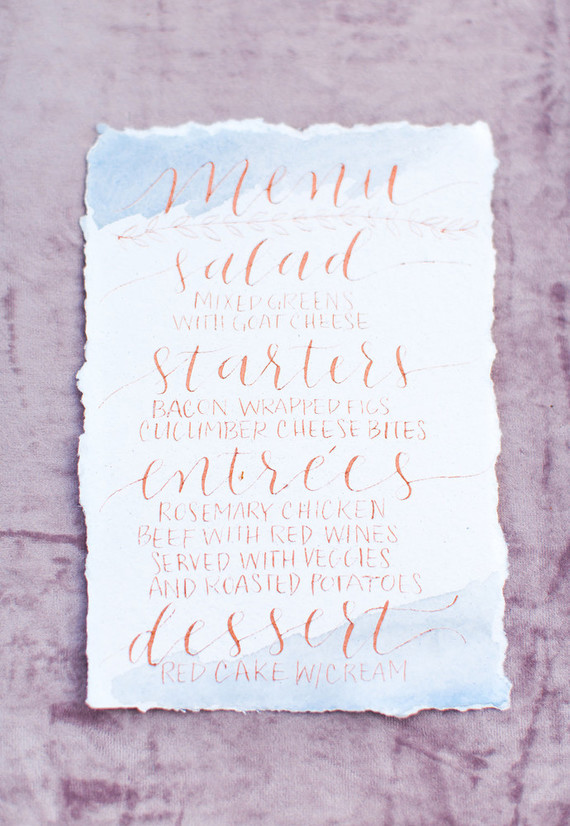 menu
salad
MIXED GREENS
WITH GOAT CHEESE
starters
BACON WRAPPED FIGS
CUCUMBER CHEESE BITES
entrées
ROSEMARY CHICKEN
BEEF WITH RED WINES
SERVED WITH VEGGIES
AND ROASTED POTATOES
dessert
RED CAKE W/CREAM